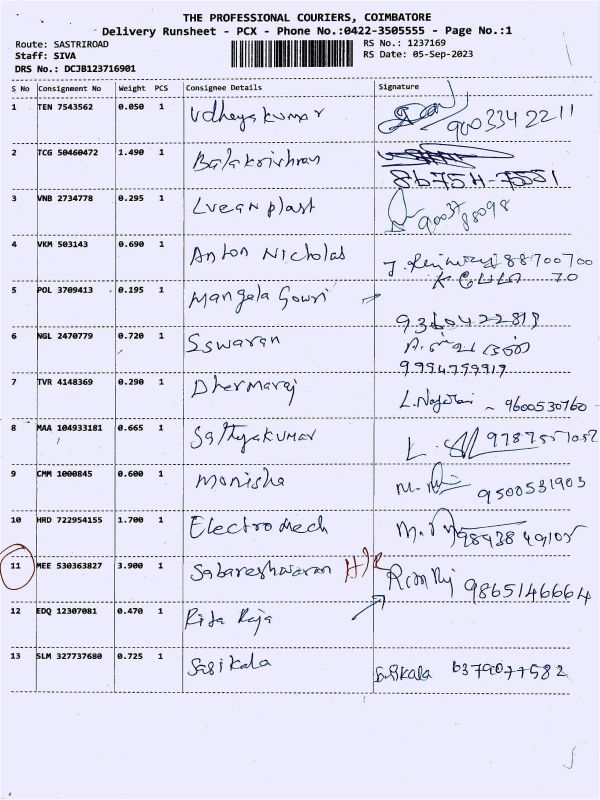 THE PROFESSIONAL COURIERS, COIMBATORE
Delivery Runsheet - PCX - Phone No.:0422-3505555 - Page No.:1
Route: SASTRIROAD RS No.: 1237169
Staff: SIVA RS Date: 05-Sep-2023
DRS No.: DCJB123716901
S No Consignment No Weight PCS Consignee Details Signature
1 TEN 7543562 0.050 1 Udhayakumar 9003342211
2 TCG 50460472 1.490 1 Balakrishnan
3 VNB 2734778 0.295 1 Lucan plast
4 VKM 503143 0.690 1 Anton Nicholas
5 POL 3709413 0.195 1 Mangala Gowri 9360422819
6 NGL 2470779 0.720 1 Eswaran 9994759919
7 TVR 4148369 0.290 1 Dharmaraj 9600530760
8 MAA 104933181 0.665 1 Sathyakumar
9 CMM 1000845 0.600 1 Monisha 9500531903
10 HRD 722954155 1.700 1 Electro Mech
11 MEE 530363827 3.900 1 Sabareshwaran 9865146664
12 EDQ 12307081 0.470 1 Rita Raja
13 SLM 327737680 0.725 1 Sasikala Sasikala 6379077582